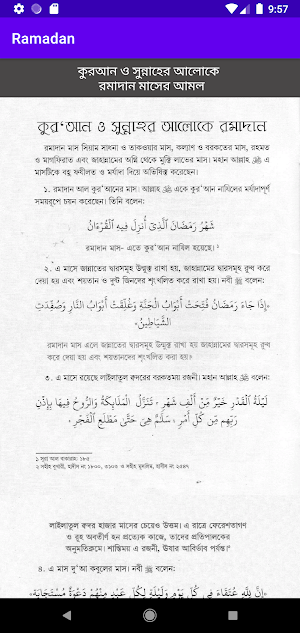 9:57
Ramadan
কুরআন ও সুন্নাহের আলোকে
রমাদান মাসের আমল
কুর'আন ও সুন্নাহর আলোকে রমাদান
রমাদান মাস সিয়াম সাধনা ও তাকওয়ার মাস, কল্যাণ ও বরকতের মাস, রহমত
ও মাগফিরাত এবং জাহান্নামের অগ্নি থেকে মুক্তি লাভের মাস। মহান আল্লাহ ﷻ এ
মাসটিকে বহু ফযীলত ও মর্যাদা দিয়ে অভিষিক্ত করেছেন।
১. রমাদান মাস আল কুর'আনের মাস। আল্লাহ ﷻ একে কুর'আন নাযিলের মর্যাদাপূর্ণ
সময়রূপে চয়ন করেছেন। তিনি বলেন:
شَهْرُ رَمَضَانَ ٱلَّذِىٓ أُنزِلَ فِيهِ ٱلْقُرْءَانُ
রমাদান মাস- এতে কুর'আন নাযিল হয়েছে। ১
২. এ মাসে জান্নাতের দ্বারসমূহ উন্মুক্ত রাখা হয়, জাহান্নামের দ্বারসমূহ রুদ্ধ করে
দেয়া হয় এবং শয়তান ও দুষ্ট জিনদের শৃংখলিত করে রাখা হয়। নবী ﷺ বলেন:
«إِذَا جَاءَ رَمَضَانُ فُتِّحَتْ أَبْوَابُ الْجَنَّةِ وَغُلِّقَتْ أَبْوَابُ النَّارِ وَصُفِّدَتِ
الشَّيَاطِينُ»
রমাদান মাস এলে জান্নাতের দ্বারসমূহ উন্মুক্ত রাখা হয় জাহান্নামের দ্বারসমূহ রুদ্ধ
করে দেয়া হয় এবং শয়তানদের শৃংখলিত করা হয়।
৩. এ মাসে রয়েছে লাইলাতুল ক্বদরের বরকতময় রজনী। মহান আল্লাহ ﷻ বলেন:
لَيْلَةُ ٱلْقَدْرِ خَيْرٌ مِّنْ أَلْفِ شَهْرٍ ۞ تَنَزَّلُ ٱلْمَلَٰٓئِكَةُ وَٱلرُّوحُ فِيهَا بِإِذْنِ
رَبِّهِم مِّن كُلِّ أَمْرٍ ۞ سَلَٰمٌ هِىَ حَتَّىٰ مَطْلَعِ ٱلْفَجْرِ ۞
১ সূরা আল বাকারাহ: ১৮৫
২ সহীহ বুখারী, হাদীস নং ১৮০০, ৩১০৩ ও সহীহ মুসলিম, হাদীস নং ২৫৪৭
লাইলাতুল ক্বদর হাজার মাসের চেয়েও উত্তম। এ রাত্রে ফেরেশতাগণ
ও রূহ অবতীর্ণ হন প্রত্যেক কাজে, তাদের প্রতিপালকের
অনুমতিক্রমে। শান্তিময় এ রজনী, ঊষার আবির্ভাব পর্যন্ত।
৪. এ মাস দু'আ কবুলের মাস। নবী ﷺ বলেন:
«إِنَّ لِلَّهِ عُتَقَاءَ فِي كُلِّ يَوْمٍ وَلَيْلَةٍ لِكُلِّ عَبْدٍ مِنْهُمْ دَعْوَةٌ مُسْتَجَابَةٌ»